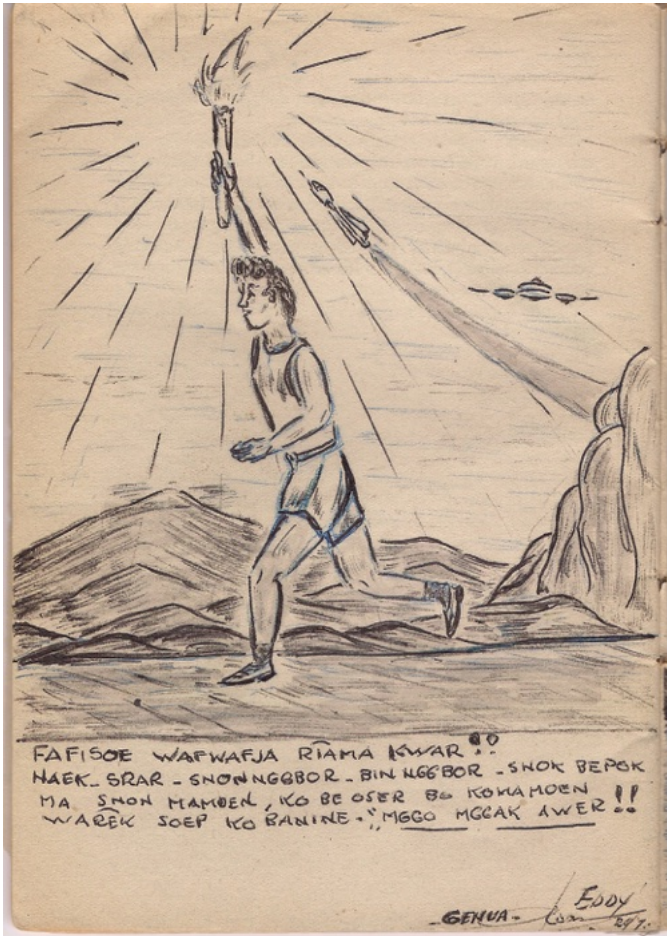 FAFISOE WAFWAFJA RIAMA KWAR !!
NAEK - SRAR - SNONNGGBOR - BIN NGGBOR - SNOK BEPOK
MA SNON MAMOEN, KO BE OSER BO KOMAMOEN
WAREK SOEP KO BANINE - "MGGO MGGAK AWER !!
GENUA -
EDDY
29/7.